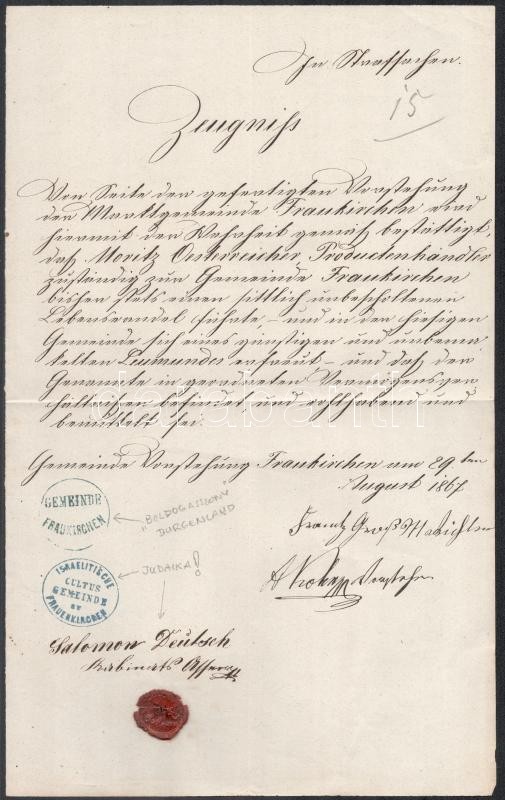 In Strafsachen.
15
Zeugniß
Von Seite der gefertigten Vorstehung
der Marktgemeinde Fraukirchen wird
hiermit der Wahrheit gemäß bestättigt,
daß Moritz Oesterreicher, Productenhändler
zuständig zur Gemeinde Fraukirchen
bisher stets einen sittlich unbescholtenen
Lebenswandel führte, – und in der hiesigen
Gemeinde sich eines günstigen und unbema-
kelten Leumundes erfreut – und daß der
Genannte in geordneten Vermögensver
hältnissen befindet und wohlhabend und
bemittelt sei.
Gemeinde Vorstehung Fraukirchen am 29ten
August 1867
GEMEINDE
FRAUKIRCHEN
"BOLDOGASSZONY"
BURGENLAND
Frantz Groß
Vorsteher
ISRAELITISCHE
CULTUS
GEMEINDE
FRAUENKIRCHEN
JUDAIKA!
Salomon Deutsch
Rabinats Assessor